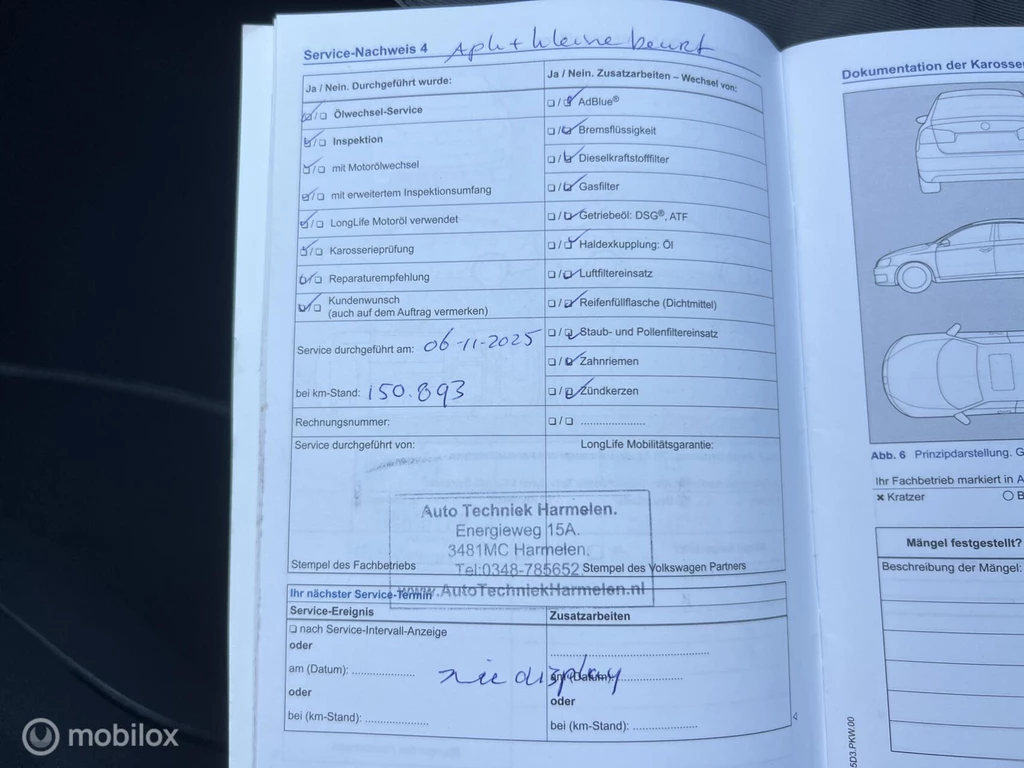 Service-Nachweis 4 Apk + kleine beurt
Ja / Nein. Durchgeführt wurde:
☑/☐ Ölwechsel-Service
☑/☐ Inspektion
☑/☐ mit Motorölwechsel
☑/☐ mit erweitertem Inspektionsumfang
☑/☐ LongLife Motoröl verwendet
☑/☐ Karosserieprüfung
☑/☐ Reparaturempfehlung
☑/☐ Kundenwunsch
(auch auf dem Auftrag vermerken)
Service durchgeführt am: 06-11-2025
bei km-Stand: 150.893
Rechnungsnummer:
Service durchgeführt von:
Stempel des Fachbetriebs
Ja / Nein. Zusatzarbeiten – Wechsel von:
☐/☑ AdBlue®
☐/☑ Bremsflüssigkeit
☐/☑ Dieselkraftstofffilter
☐/☑ Gasfilter
☐/☑ Getriebeöl: DSG®, ATF
☐/☑ Haldexkupplung: Öl
☐/☑ Luftfiltereinsatz
☐/☑ Reifenfüllflasche (Dichtmittel)
☐/☑ Staub- und Pollenfiltereinsatz
☐/☑ Zahnriemen
☐/☑ Zündkerzen
☐/☐ ......................
LongLife Mobilitätsgarantie:
Stempel des Volkswagen Partners
Auto Techniek Harmelen.
Energieweg 15A.
3481MC Harmelen.
Tel:0348-785652
www.AutoTechniekHarmelen.nl
Ihr nächster Service-Termin
Service-Ereignis
☐ nach Service-Intervall-Anzeige
oder
am (Datum): ......................
oder
bei (km-Stand): ......................
Zusatzarbeiten
......................
am (Datum): ......................
oder
bei (km-Stand): ......................
zie display
Dokumentation der Karosser
Abb. 6 Prinzipdarstellung. G
Ihr Fachbetrieb markiert in A
× Kratzer ○ B
Mängel festgestellt?
Beschreibung der Mängel:
5D3.PKW.00
mobilox